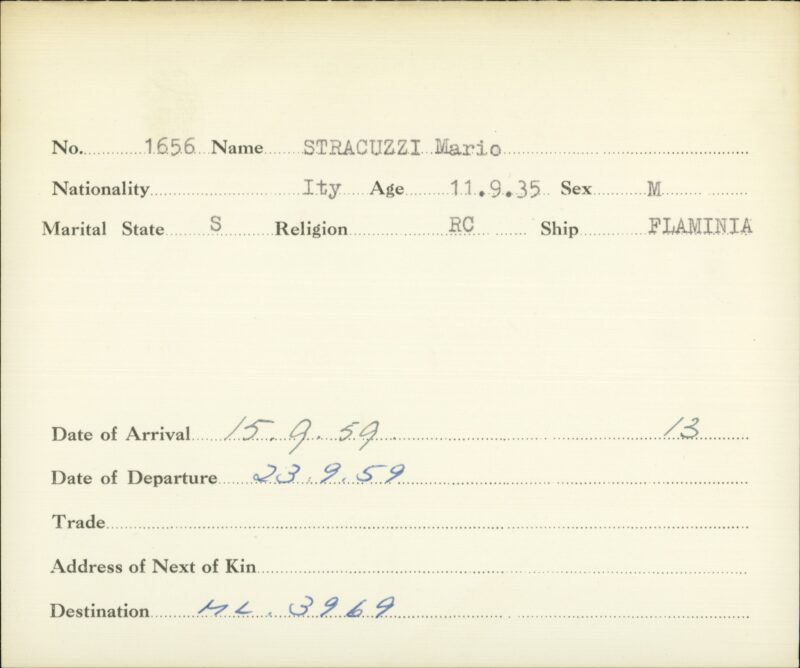 No. 1656 Name STRACUZZI Mario
Nationality Ity Age 11.9.35 Sex M
Marital State S Religion RC Ship FLAMINIA
Date of Arrival 15.9.59. 13
Date of Departure 23.9.59
Trade
Address of Next of Kin
Destination ML. 3969